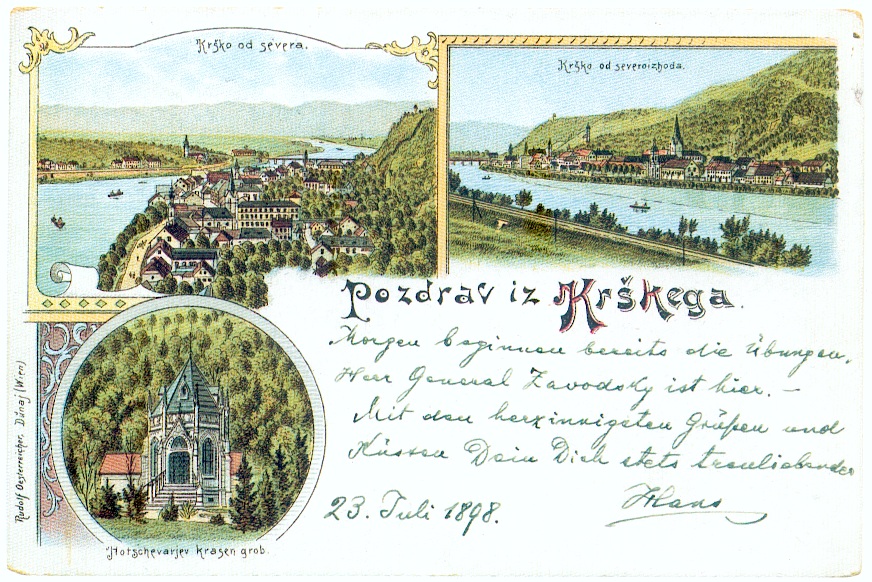 Krško od severa.
Krško od severoizhoda.
Pozdrav iz Krškega.
Morgen beginnen bereits die Übungen,
Herr General Zavodsky ist hier. –
Mit den herzinnigsten Grüßen und
Küssen Dein Dich stets treuliebender
Hans
23. Juli 1898.
Hotschevarjev krasen grob.
Rudolf Oesterreicher, Dunaj (Wien)